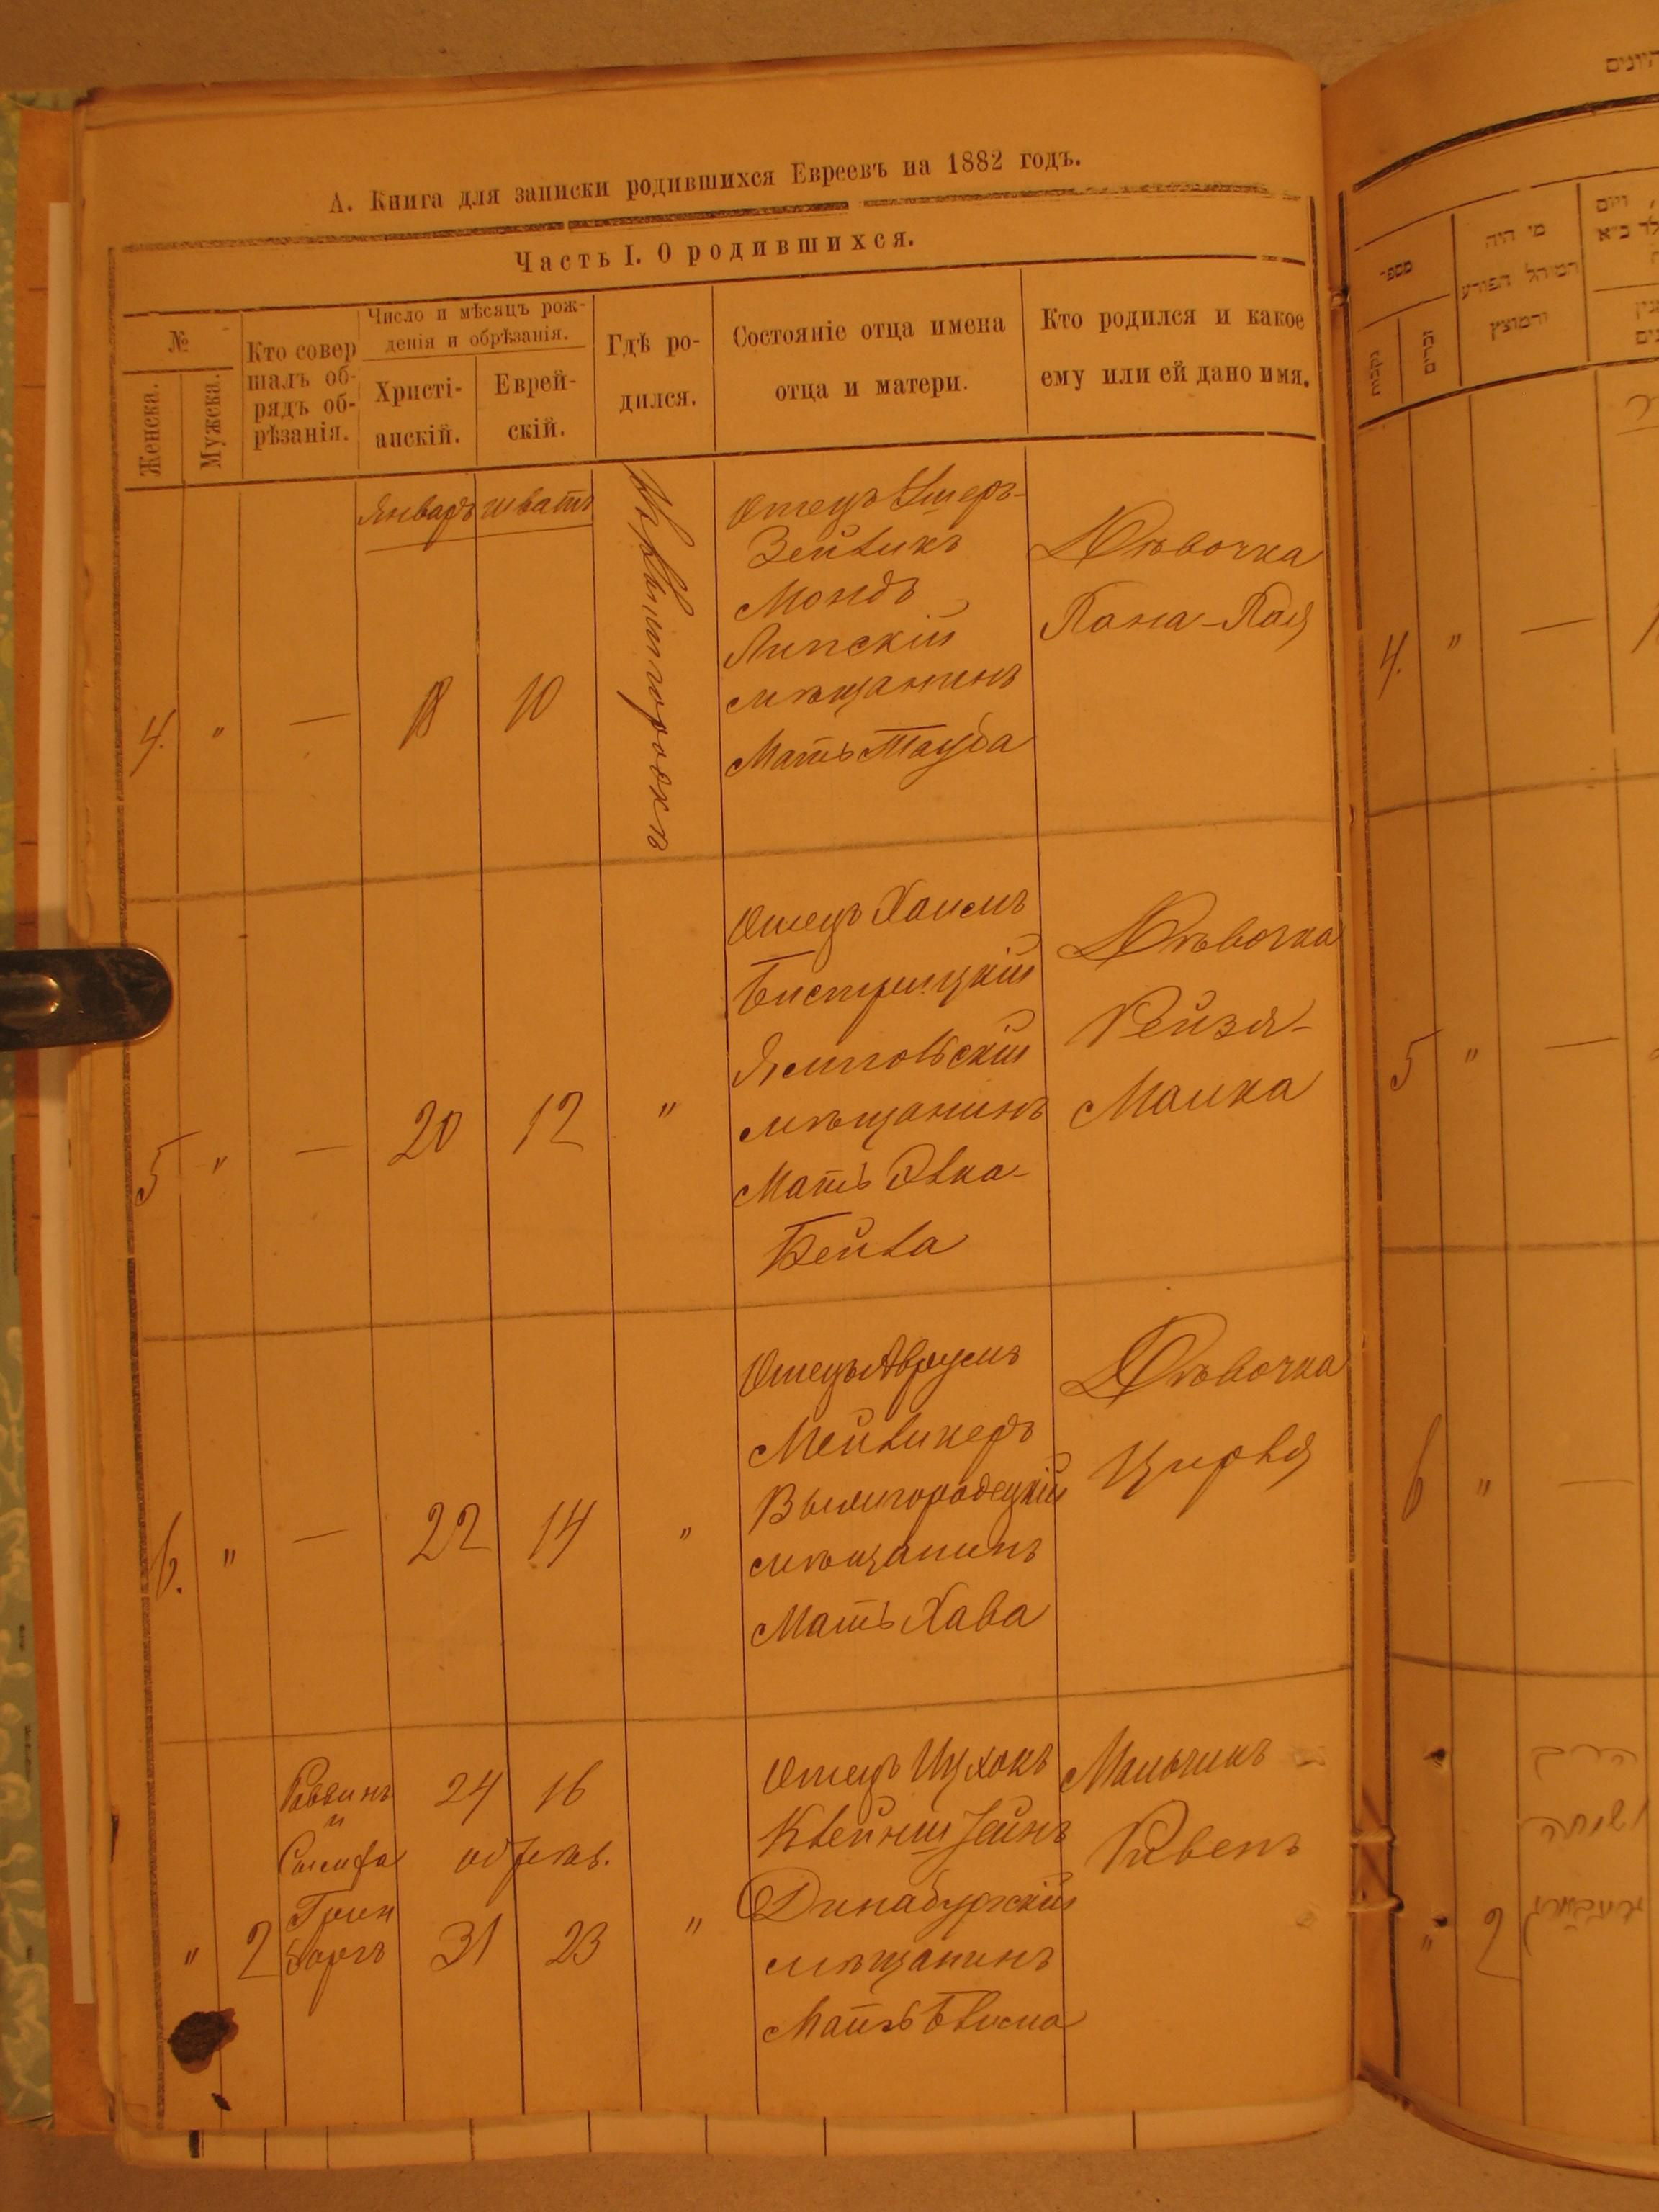 А. Книга для записки родившихся Евреевъ на 1882 годъ.
Часть I. О родившихся.
№
Женска.
Мужска.
Кто совер
шалъ об-
рядъ об-
рѣзанія.
Число и мѣсяцъ рож-
денія и обрѣзанія.
Христі-
анскій.
Еврей-
скій.
Гдѣ ро-
дился.
Состояніе отца имена
отца и матери.
Кто родился и какое
ему или ей дано имя.
Январь шватъ
4. " — 18 10
Отецъ Ушеръ-
Зейликъ
Мондъ
Липскій
мѣщанинъ
Мать Тауба
Дѣвочка
5 " — 20 12 "
Отецъ Хаимъ
Быстрицкій
мѣщанинъ
Мать Элка-
Бейла
Дѣвочка
Рейзя-
Малка
6. " — 22 14 "
Отецъ Аврумъ
Вышгородецкій
мѣщанинъ
Мать Хава
Дѣвочка
Цирля
" 2
Раввинъ
и
Грин
баргъ
24 16
обрезав.
31 23
"
Отецъ Ицхокъ
Клейнштейнъ
Динабургскій
мѣщанинъ
Мать Блюма
Мальчикъ
Рувенъ
מספר
נקבות
זכרים
מי היה
המוהל הפורע
והמוצץ
4. " —
5 " —
6 " —
" 2